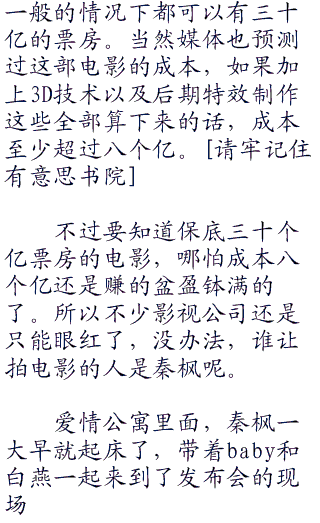 一般的情况下都可以有三十
亿的票房。当然媒体也预测
过这部电影的成本，如果加
上3D技术以及后期特效制作
这些全部算下来的话，成本
至少超过八个亿。[请牢记住
有意思书院]
不过要知道保底三十个
亿票房的电影，哪怕成本八
个亿还是赚的盆盈钵满的
了。所以不少影视公司还是
只能眼红了，没办法，谁让
拍电影的人是秦枫呢。
爱情公寓里面，秦枫一
大早就起床了，带着baby和
白燕一起来到了发布会的现
场